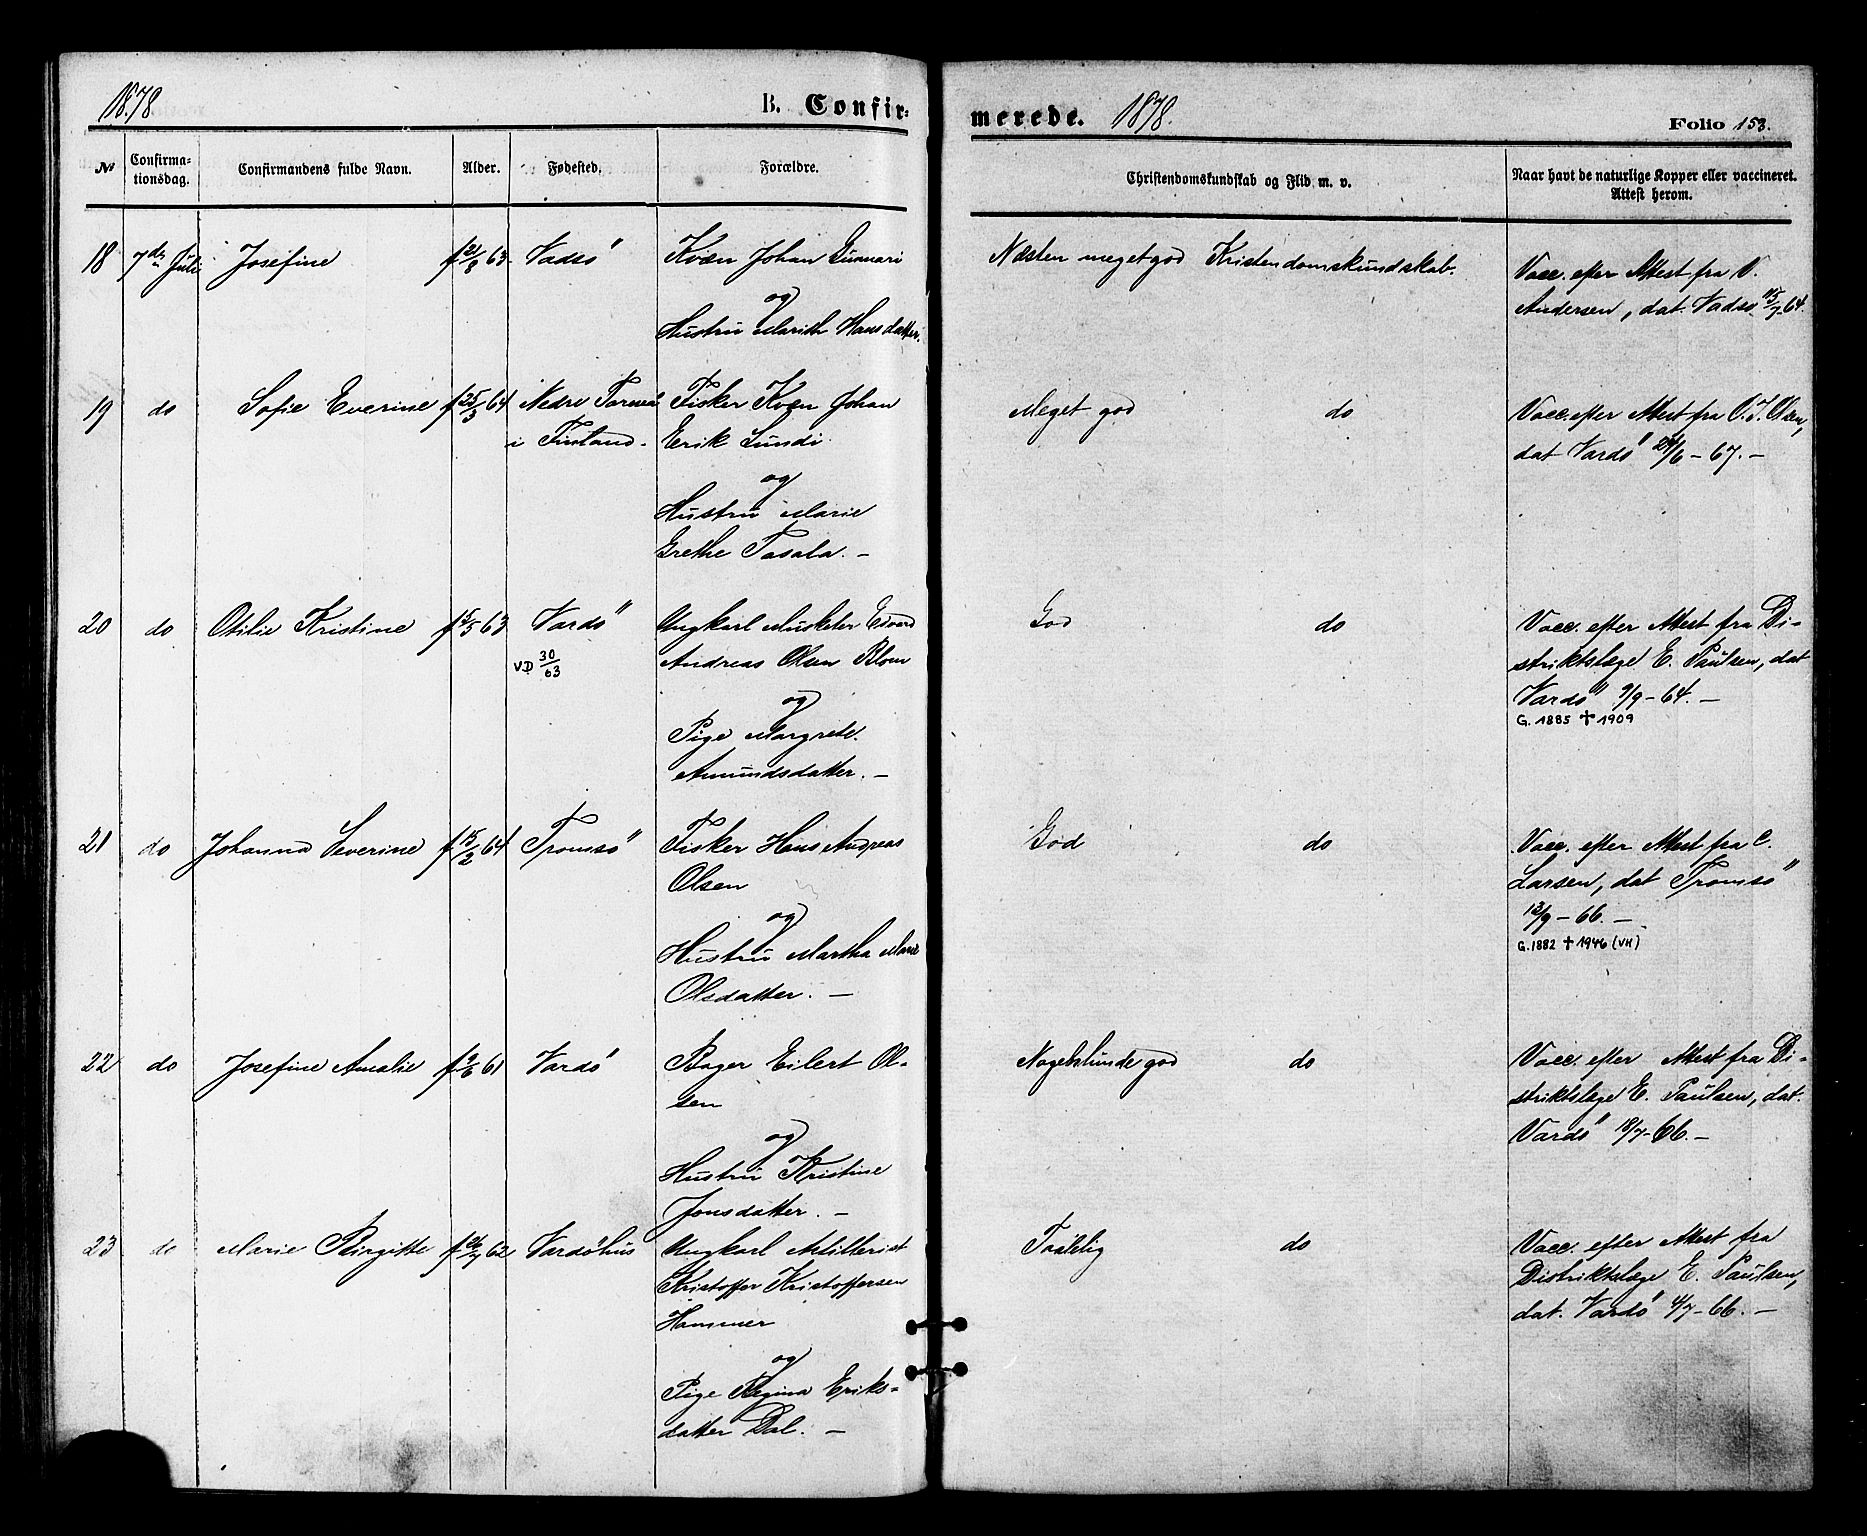 1878
B. Confir-
№ Confirma-
tionsdag. Confirmandens fulde Navn. Alder. Fødested. Forældre.
18 7de Juli Josefine Vadsö Kvæn Johan
og
Hustru Marith Hansdatter.
19 do Sofie Everine f 25/3 64 Nedre
i Finland. Fisker Kvæn Johan
Erik Lundi
og
Hustru Marie
Grethe Tasala. –
20 do Otilie Kristine Vardö Ungkarl Musketer Edvard
VD 30/63 Andreas Olsen Blom
og
Pige Margrete
Amundsdatter. –
21 do Johanna Severine f 15/2 64 Tromsö Fisker Hans Andreas
Olsen
og
Hustru Martha Marie
Olsdatter. –
22 do Josefine Amalie Vardö Bager Eilert Ol-
sen
og
Hustru Kristine
Jonsdatter. –
23 do Marie Birgitte Vardöhus Ungkarl Artillerist
Kristoffer Kristoffersen
Hammer
og
Pige Regina Eriks-
datter Dal. –
merede. 1878. Folio 153.
Christendomskundskab og Flid m. v. Naar havt de naturlige Kopper eller vaccineret.
Attest herom.
Næsten meget god Kristendomskundskab. Vacc. efter Attest fra V.
Andersen, dat. Vadsö 15/7 64.
Meget god do Vacc. efter Attest fra O. J. Olsen,
dat Vardö 24/6 – 67. –
God do Vacc. efter Attest fra Di-
striktslæge E. Paulsen, dat
Vardö 9/9 – 64. –
G. 1885 ✝ 1909
God do Vacc. efter Attest fra C.
Larsen, dat Tromsö
13/9 – 66. –
G. 1882 ✝ 1946 (VH)
Nogetslunde god do Vacc. efter Attest fra Di-
striktslæge E. Paulsen, dat.
Vardö 18/7 – 66. –
Taalelig do Vacc. efter Attest fra
Distriktslæge E. Paulsen,
dat. Vardö 4/7 – 66. –